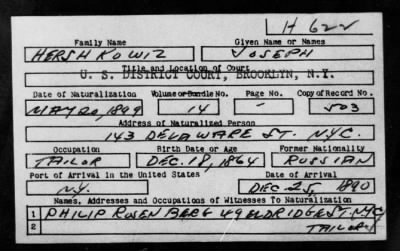 H 622
Family Name Given Name or Names
HERSHKOWIZ JOSEPH
Title and Location of Court
U. S. DISTRICT COURT, BROOKLYN, N.Y.
Date of Naturalization Volume or Bundle No. Page No. Copy of Record No.
MAY 20, 1899 14 - 503
Address of Naturalized Person
143 DELAWARE ST. NYC.
Occupation Birth Date or Age Former Nationality
TAILOR DEC. 18, 1864 RUSSIAN
Port of Arrival in the United States Date of Arrival
N.Y. DEC. 25, 1890
Names, Addresses and Occupations of Witnesses To Naturalization
1 PHILIP ROSENBERG 49 ELDRIDGE ST. NYC
2 TAILOR